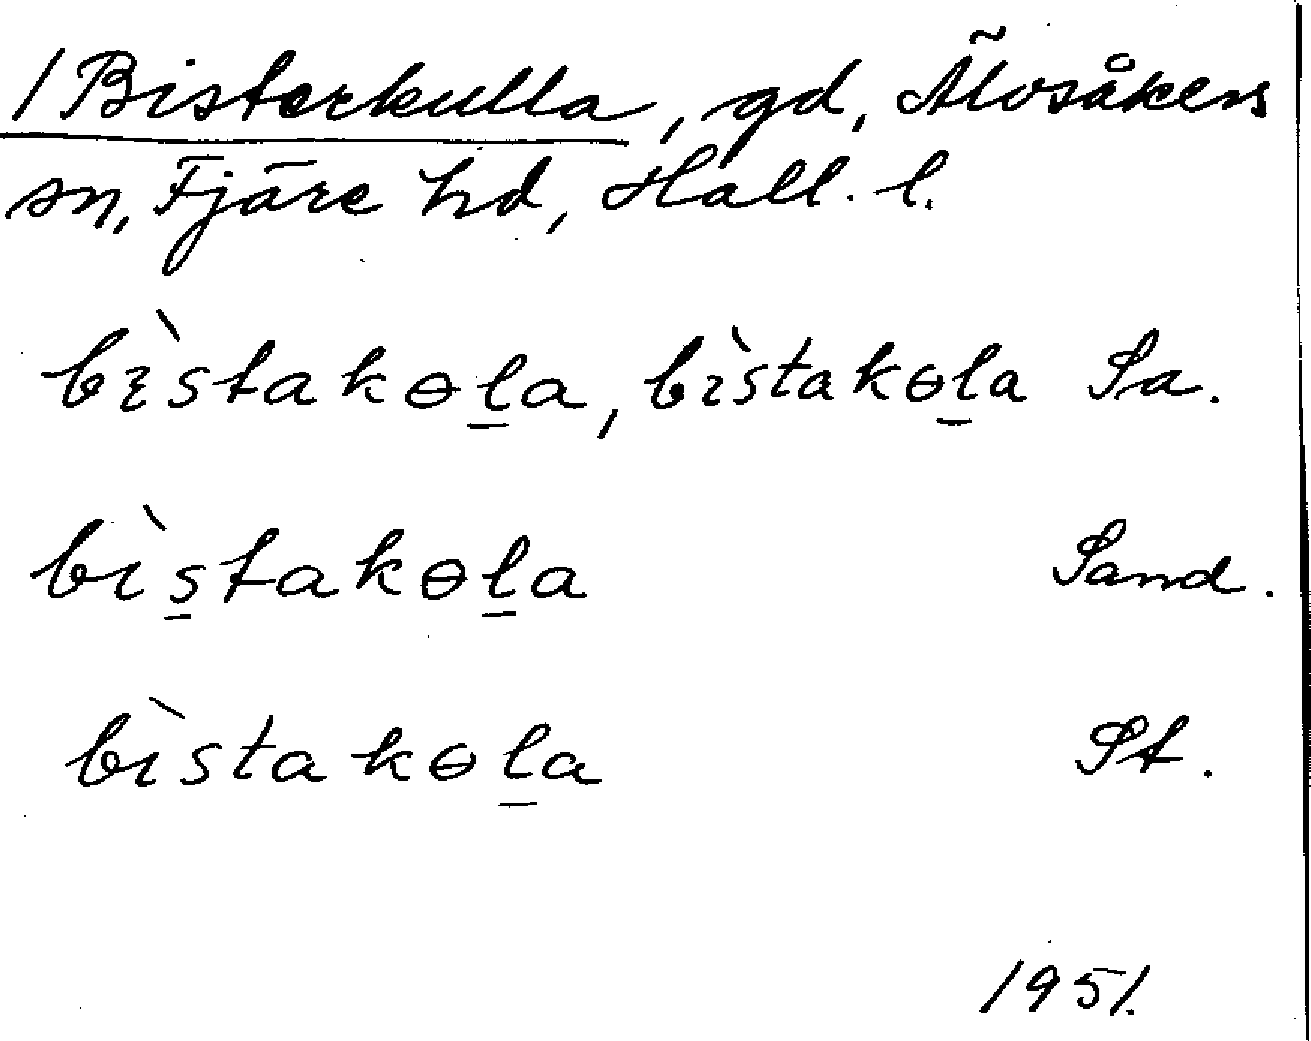 /Bisterkulla, gd, Älvsåkers
sn, Fjäre hd, Hall. l.
bɪ̀stakɵl̲a, bìstakɵl̲a Sa.
bìs̲takɵl̲a Sand.
bìstakɵl̲a St.
1951.